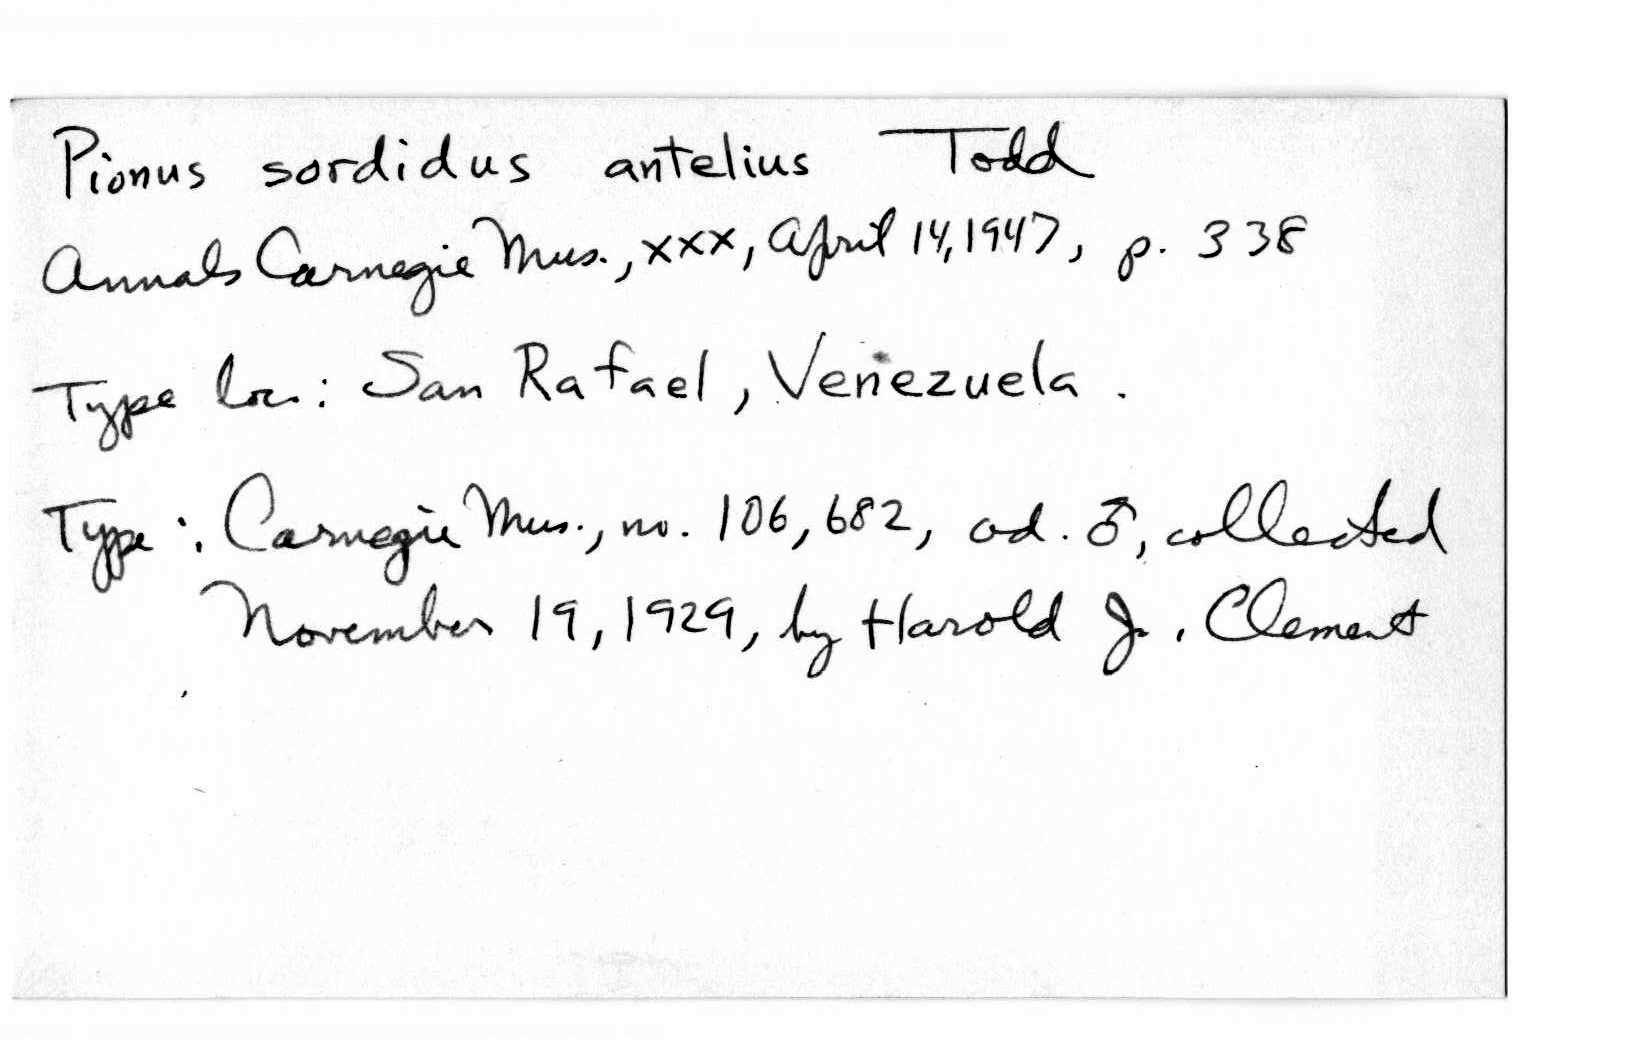 Pionus sordidus antelius Todd
Annals Carnegie Mus., xxx, April 14, 1947, p. 338
Type loc.: San Rafael, Venezuela.
Type: Carnegie Mus., no. 106,682, ad. ♂, collected
November 19, 1929, by Harold J. Clement